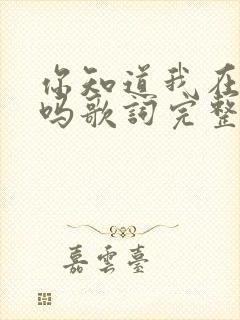 你知道我在
吗歌詞完整
嘉雲臺